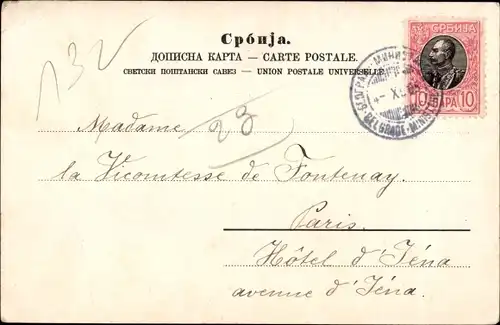 132
Србија.
ДОПИСНА КАРТА — CARTE POSTALE.
СВЕТСКИ ПОШТАНСКИ САВЕЗ — UNION POSTALE UNIVERSELLE
СРБИЈА
10 ПАРА 10
BELGRADE-MINIST
23
Madame
la Vicomtesse de Fontenay
Paris.
Hôtel d'Jéna
avenue d'Jéna.